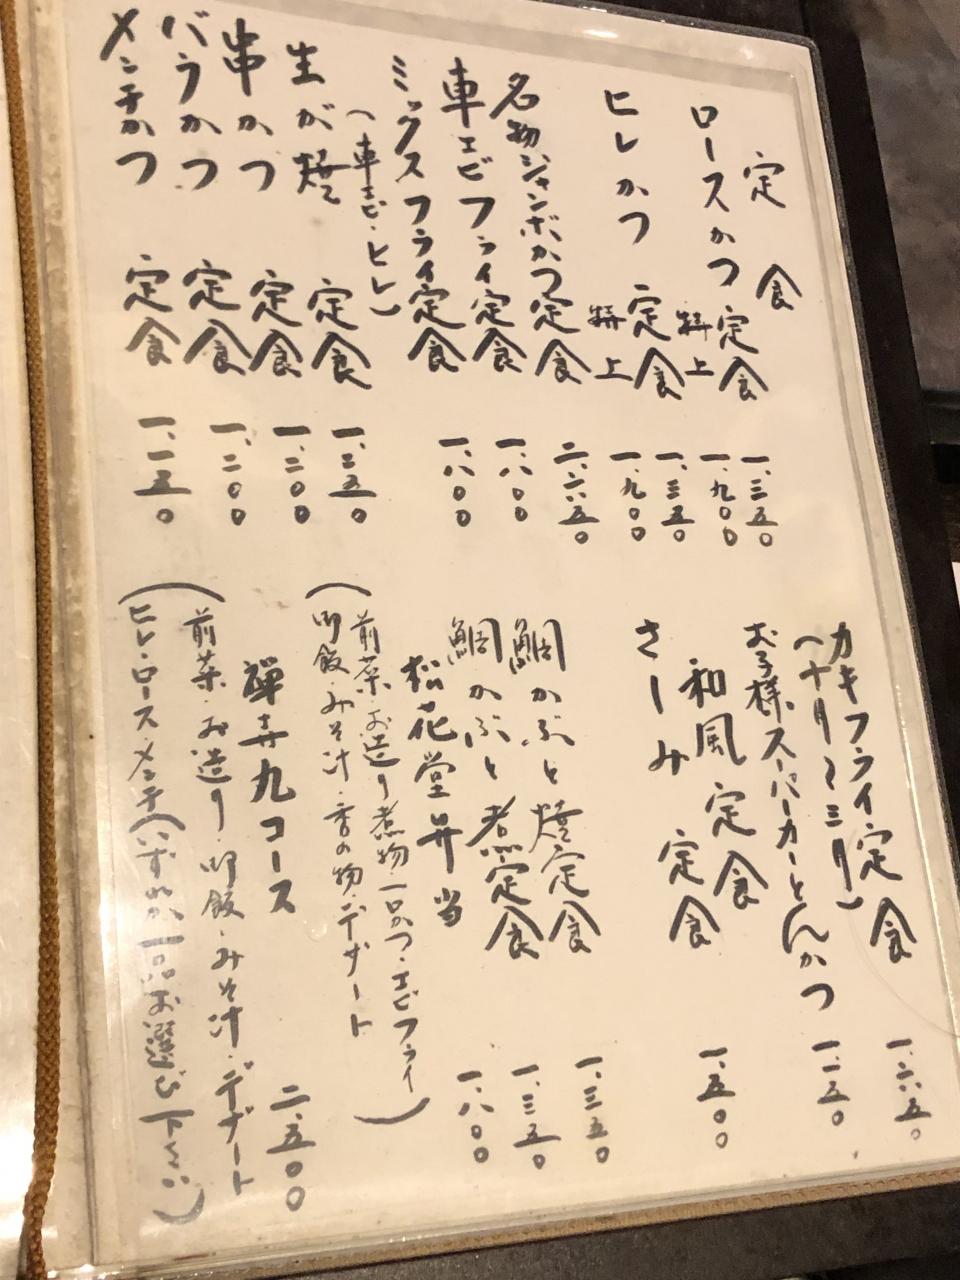 定食
ロースかつ定食 一、三五〇
特上 一、九〇〇
ヒレかつ定食 一、三五〇
特上 一、九〇〇
名物ジャンボかつ定食 二、六五〇
車エビフライ定食 一、八〇〇
ミックスフライ定食 一、八〇〇
(車エビ・ヒレ)
生が焼定食 一、三五〇
串かつ定食 一、二〇〇
バラかつ定食 一、二〇〇
メンチかつ定食 一、一五〇
カキフライ定食 一、六五〇
(十月〜三月)
お子様スーパーカーとんかつ 一、五〇
和風定食 一、五〇〇
さしみ定食
鯛かぶと焼定食 一、三五〇
鯛かぶと煮定食 一、三五〇
松花堂弁当 一、八〇〇
(前菜・お造り・煮物・一口かつ・エビフライ
御飯・みそ汁・香の物・デザート)
禅寿九コース 二、五〇〇
(前菜・お造り・御飯・みそ汁・デザート
ヒレ・ロース・メンチ(いずれか一品お選び下さい))